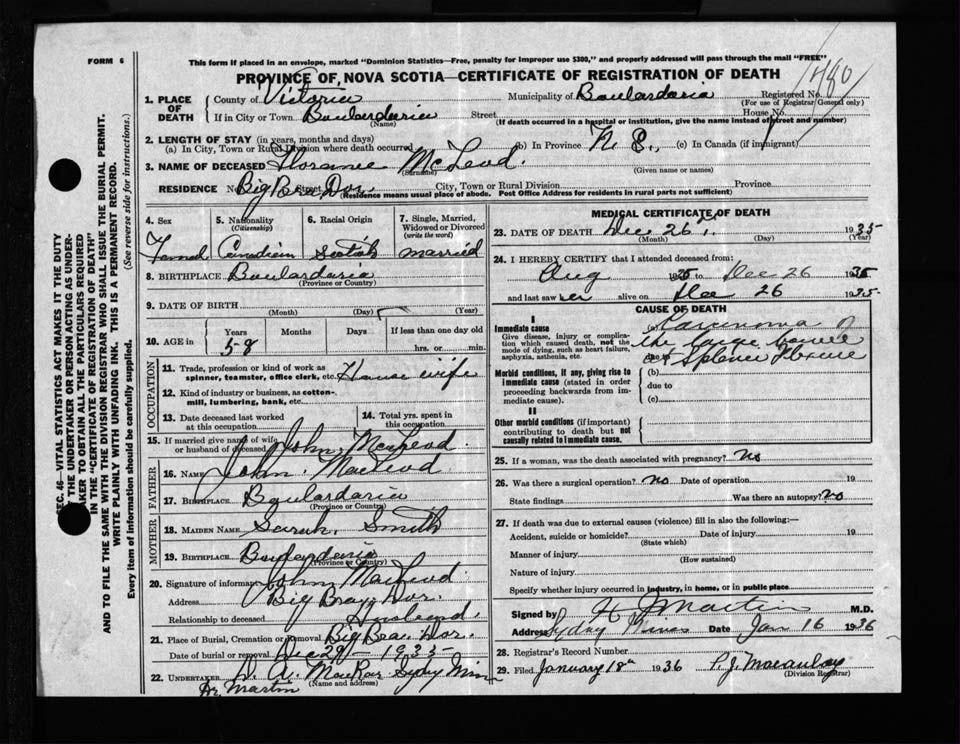 FORM 6
This form if placed in an envelope, marked "Dominion Statistics—Free, penalty for improper use $300," and properly addressed will pass through the mail "FREE"
PROVINCE OF NOVA SCOTIA—CERTIFICATE OF REGISTRATION OF DEATH
480
1. PLACE OF DEATH
County of Victoria Municipality of Boulardaria Registered No.
(For use of Registrar General only)
If in City or Town Boulardaria Street House No.
(Name) (If death occurred in a hospital or institution, give the name instead of street and number)
2. LENGTH OF STAY (in years, months and days)
(a) In City, Town or Rural Division where death occurred (b) In Province N. S., (c) In Canada (if immigrant)
3. NAME OF DECEASED Florance McLeod
(Surname) (Given name or names)
RESIDENCE No. Big Bras Dor. Street City, Town or Rural Division Province
(Residence means usual place of abode. Post Office Address for residents in rural parts not sufficient)
4. Sex
Femal
5. Nationality
(Citizenship)
Canadian
6. Racial Origin
Scotish
7. Single, Married, Widowed or Divorced
(write the word)
married
8. BIRTHPLACE Boulardaria
(Province or Country)
9. DATE OF BIRTH
(Month) (Day) (Year)
10. AGE in
Years Months Days If less than one day old
58 hrs. or min.
OCCUPATION
11. Trade, profession or kind of work as spinner, teamster, office clerk, etc. House wife
12. Kind of industry or business, as cotton-mill, lumbering, bank, etc.
13. Date deceased last worked at this occupation
14. Total yrs. spent in this occupation
15. If married give name of wife or husband of deceased John McLeod
FATHER
16. NAME John. MacLeod
17. BIRTHPLACE Boulardaria
(Province or Country)
MOTHER
18. MAIDEN NAME Sarah. Smith
19. BIRTHPLACE Boulardaria
(Province or Country)
20. Signature of informant John MacLeod
Address Big Bras Dor.
Relationship to deceased Husband
21. Place of Burial, Cremation or Removal Big Bras Dor.
Date of burial or removal Dec 29 - 1935
22. UNDERTAKER D. A. MacRae Sydney Mines
(Name and address)
Dr. Martin
MEDICAL CERTIFICATE OF DEATH
23. DATE OF DEATH Dec 26 1935
(Month) (Day) (Year)
24. I HEREBY CERTIFY that I attended deceased from:
Aug 1935 to Dec 26 1935
and last saw her alive on Dec 26 1935
CAUSE OF DEATH
I
Immediate cause
Give disease, injury or complication which caused death, not the mode of dying, such as heart failure, asphyxia, asthenia, etc.
(a) Carcinoma of
the large bowel
Splenic Flexure
Morbid conditions, if any, giving rise to immediate cause (stated in order proceeding backwards from immediate cause).
(b)
due to
(c)
II
Other morbid conditions (if important) contributing to death but not causally related to immediate cause.
25. If a woman, was the death associated with pregnancy? No
26. Was there a surgical operation? No Date of operation 19
State findings Was there an autopsy? No
27. If death was due to external causes (violence) fill in also the following:—
Accident, suicide or homicide? Date of injury 19
(State which)
Manner of injury
(How sustained)
Nature of injury
Specify whether injury occurred in industry, in home, or in public place
Signed by H J Martin M.D.
Address Sydney Mines Date Jan 16 1936
28. Registrar's Record Number
29. Filed January 18th 1936 P. J. Macaulay
(Division Registrar)
SEC. 46—VITAL STATISTICS ACT MAKES IT THE DUTY
OF THE UNDERTAKER OR PERSON ACTING AS UNDER-
TAKER TO OBTAIN ALL THE PARTICULARS REQUIRED
IN THE "CERTIFICATE OF REGISTRATION OF DEATH"
AND TO FILE THE SAME WITH THE DIVISION REGISTRAR WHO SHALL ISSUE THE BURIAL PERMIT.
WRITE PLAINLY WITH UNFADING INK. THIS IS A PERMANENT RECORD.
Every item of information should be carefully supplied. (See reverse side for instructions.)